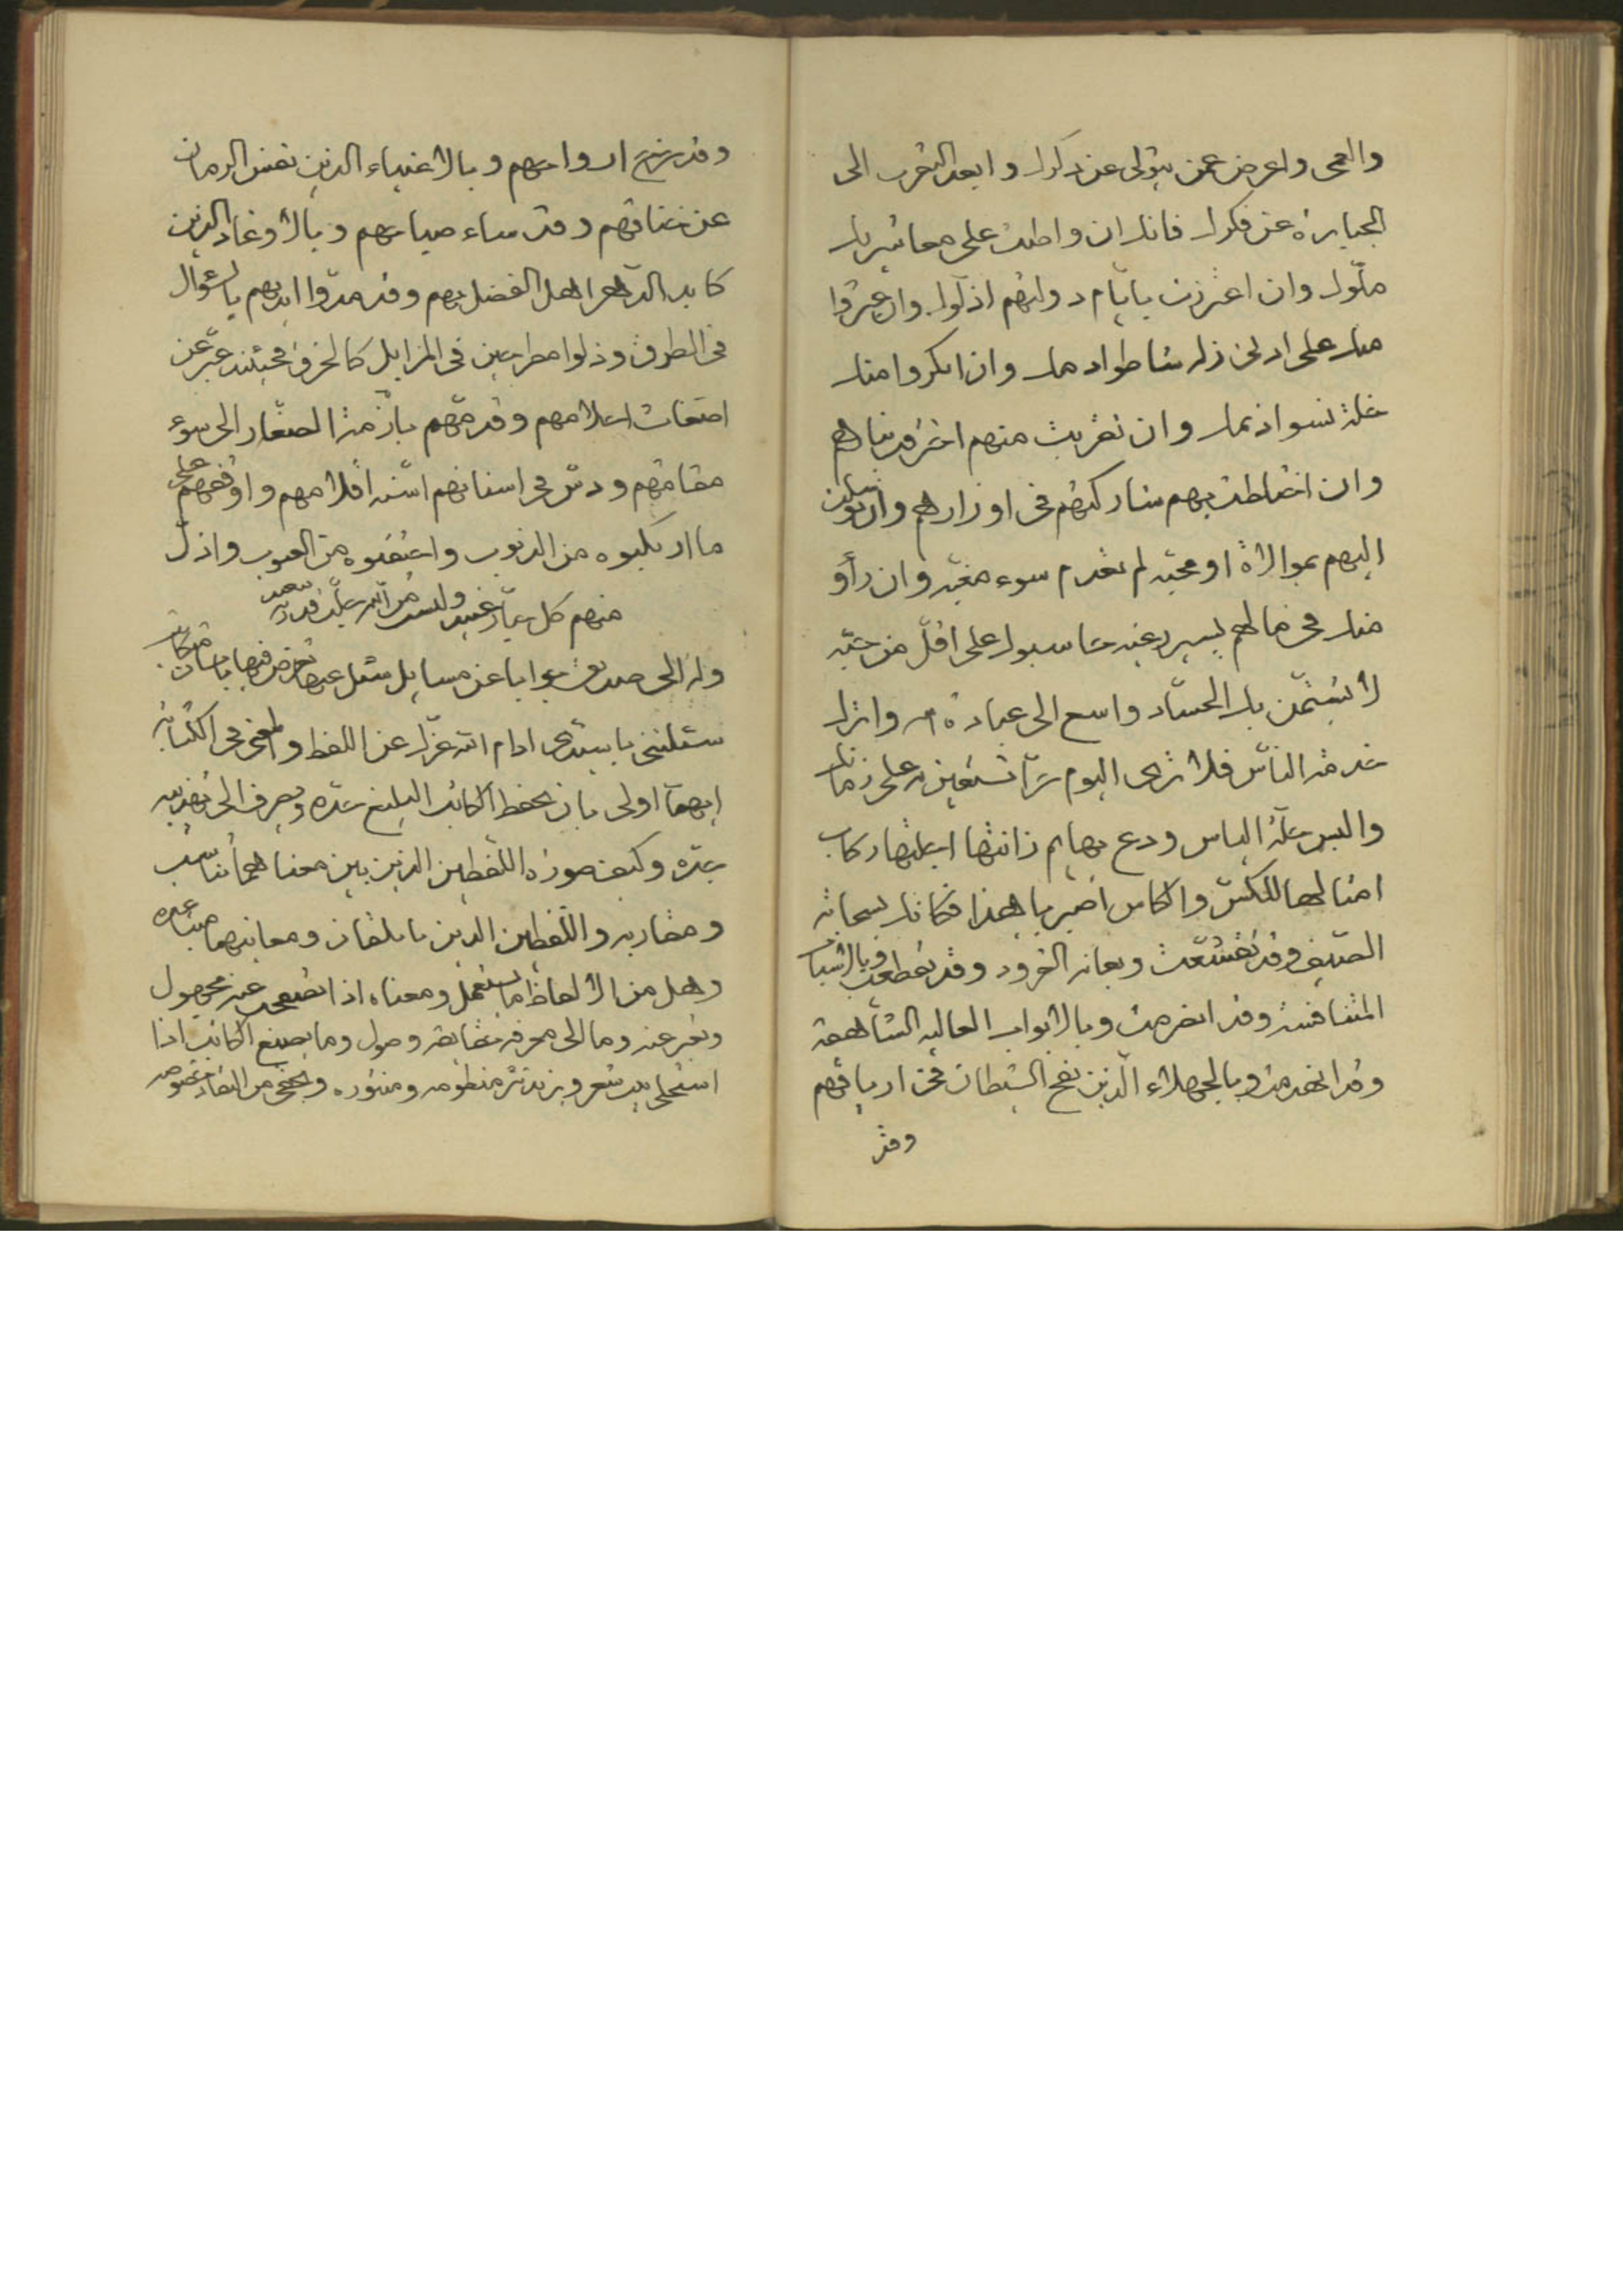 والعمى واعرض عمن يتولى عن ذكرك وابعد التقرب الى
الجبابرة عن فكرك فانك ان واظبت على معاشرتك
ملّوك وان اعتززت بايّام دولتهم اذلّوك وان عثروا
منك على ادنى زلة شاطوا دمك وان انكروا منك
خلة نسوا ذممك وان تقربت منهم احترقت بنارهم
وان اختلطت بهم شاركتهم فى اوزارهم وان توسلت
اليهم بموالاة او محبّة لم تعدم سوء مغبّة وان رأو
منك فى مالهم يسير رغبة حاسبوك على اقلّ من حبّة
لا يشمتن بك الحسّاد واسع الى عبادة الله واترك
خدمة النّاس فلا ترى اليوم حرّا تستعين به على زمانك
والبس حلّة الياس ودع بهايم زانتها
امثالها للكس والكاس اصبر يا هذا فكانك بسحابة
الصيف وقد تقشّعت وبعانة القرود وقد تقطعت وبالاشيا
المتنافسة وقد انصرمت وبالابواب العالية الشاهقة
وقد انهدمت وبالجهلاء الّذين نفخ الشيطان فى ارياقهم
وقد
وقد ارواحهم وبالاغنياء الذين نفس الزمان
عن خناقهم وقد ساء صباحهم وبالاوغاد الذين
كايد الدّهر اهل الفضل بهم وقد مدّوا ايديهم بالسؤال
فى الطرق وذلّوا مطرحين فى المزابل كالخرق فحينئذ عبّر عن
اضغاث احلامهم وقدمهم بازمّة الصغار الى سوء
مقامهم ودسّ فى اسنانهم اسنّة اقلامهم واوقفهم على
ما ارتكبوه من الذنوب واحتقبوه من العيوب واذلّ
منهم كل جبّار عنيد وليست من الله جلّت قدرته ببعيد
وله الى صديق جوابا عن مسايل سئل عنها
سئلتنى يا سيّدى ادام الله عزّك عن اللفظ والمعنى فى الكتابة
ايهما اولى بان يحفظ الكاتب البليغ حدّه ويصرف الى تهذيبه
جدّه وكيف صورة اللّفظين الذين بين معناهما تناسب
ومقاربة واللّفظين الذين يأتلفان ومعانيهما متباعدة
وهل من الالفاظ ما يستعمل ومعناه اذا تصفحت عنه مجهول
وتعبر عنه وما الى معرفة حقايقه وصول وما يصنع الكاتب اذا
استحلى بيت شعر ويزيد نثر منظومه ومنثوره